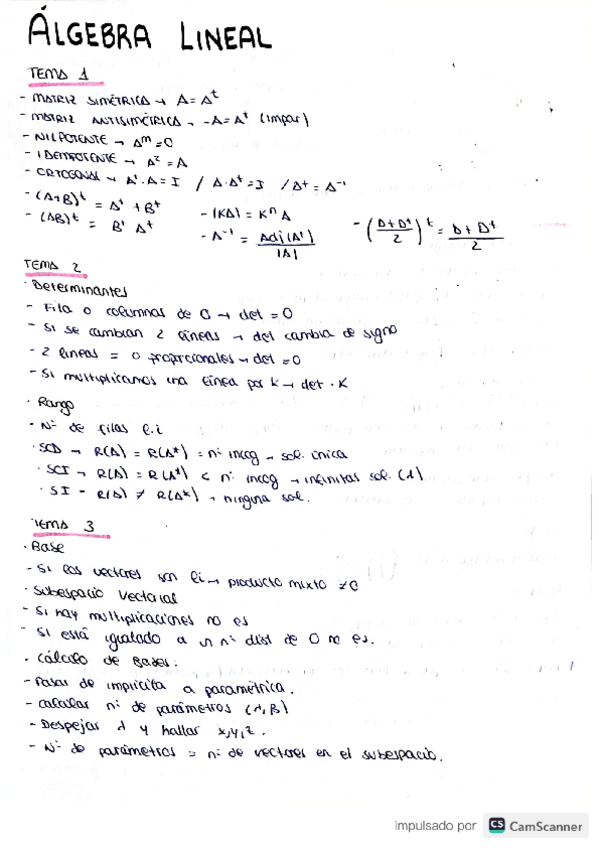 ÁLGEBRA LINEAL
TEMA 1
- MATRIZ SIMÉTRICA → A=Aᵗ
- MATRIZ ANTISIMÉTRICA → -A=Aᵗ (impar)
- NILPOTENTE → Aᵐ=0
- IDEMPOTENTE → A²=A
- ORTOGONAL → Aᵗ·A=I / A·Aᵗ=I / Aᵗ=A⁻¹
- (A+B)ᵗ = Aᵗ+Bᵗ
- (AB)ᵗ = Bᵗ Aᵗ
- |KA| = Kⁿ A
- A⁻¹ = Adj(Aᵗ) / |A|
- ((A+Aᵗ)/2)ᵗ = (A+Aᵗ)/2
TEMA 2
· Determinantes
- Fila o columnas de 0 → det = 0
- Si se cambian 2 líneas → det cambia de signo
- 2 líneas = o proporcionales → det = 0
- Si multiplicamos una línea por k → det · K
· Rango
- Nº de filas l.i
· SCD → R(A) = R(A*) = nº incog → sol. única
· SCI → R(A) = R(A*) < nº incog → infinitas sol. (λ)
· SI - R(A) ≠ R(A*) → ninguna sol.
TEMA 3
· Base
- Si los vectores son li → producto mixto ≠0
· Subespacio vectorial
- Si hay multiplicaciones no es
- Si está igualado a un nº dist de 0 no es.
· Cálculo de Bases:
- Pasar de implícita a paramétrica.
- Calcular nº de parámetros (λ, β)
- Despejar λ y hallar x,y,z.
- Nº de parámetros = nº de vectores en el subespacio.
impulsado por CS CamScanner